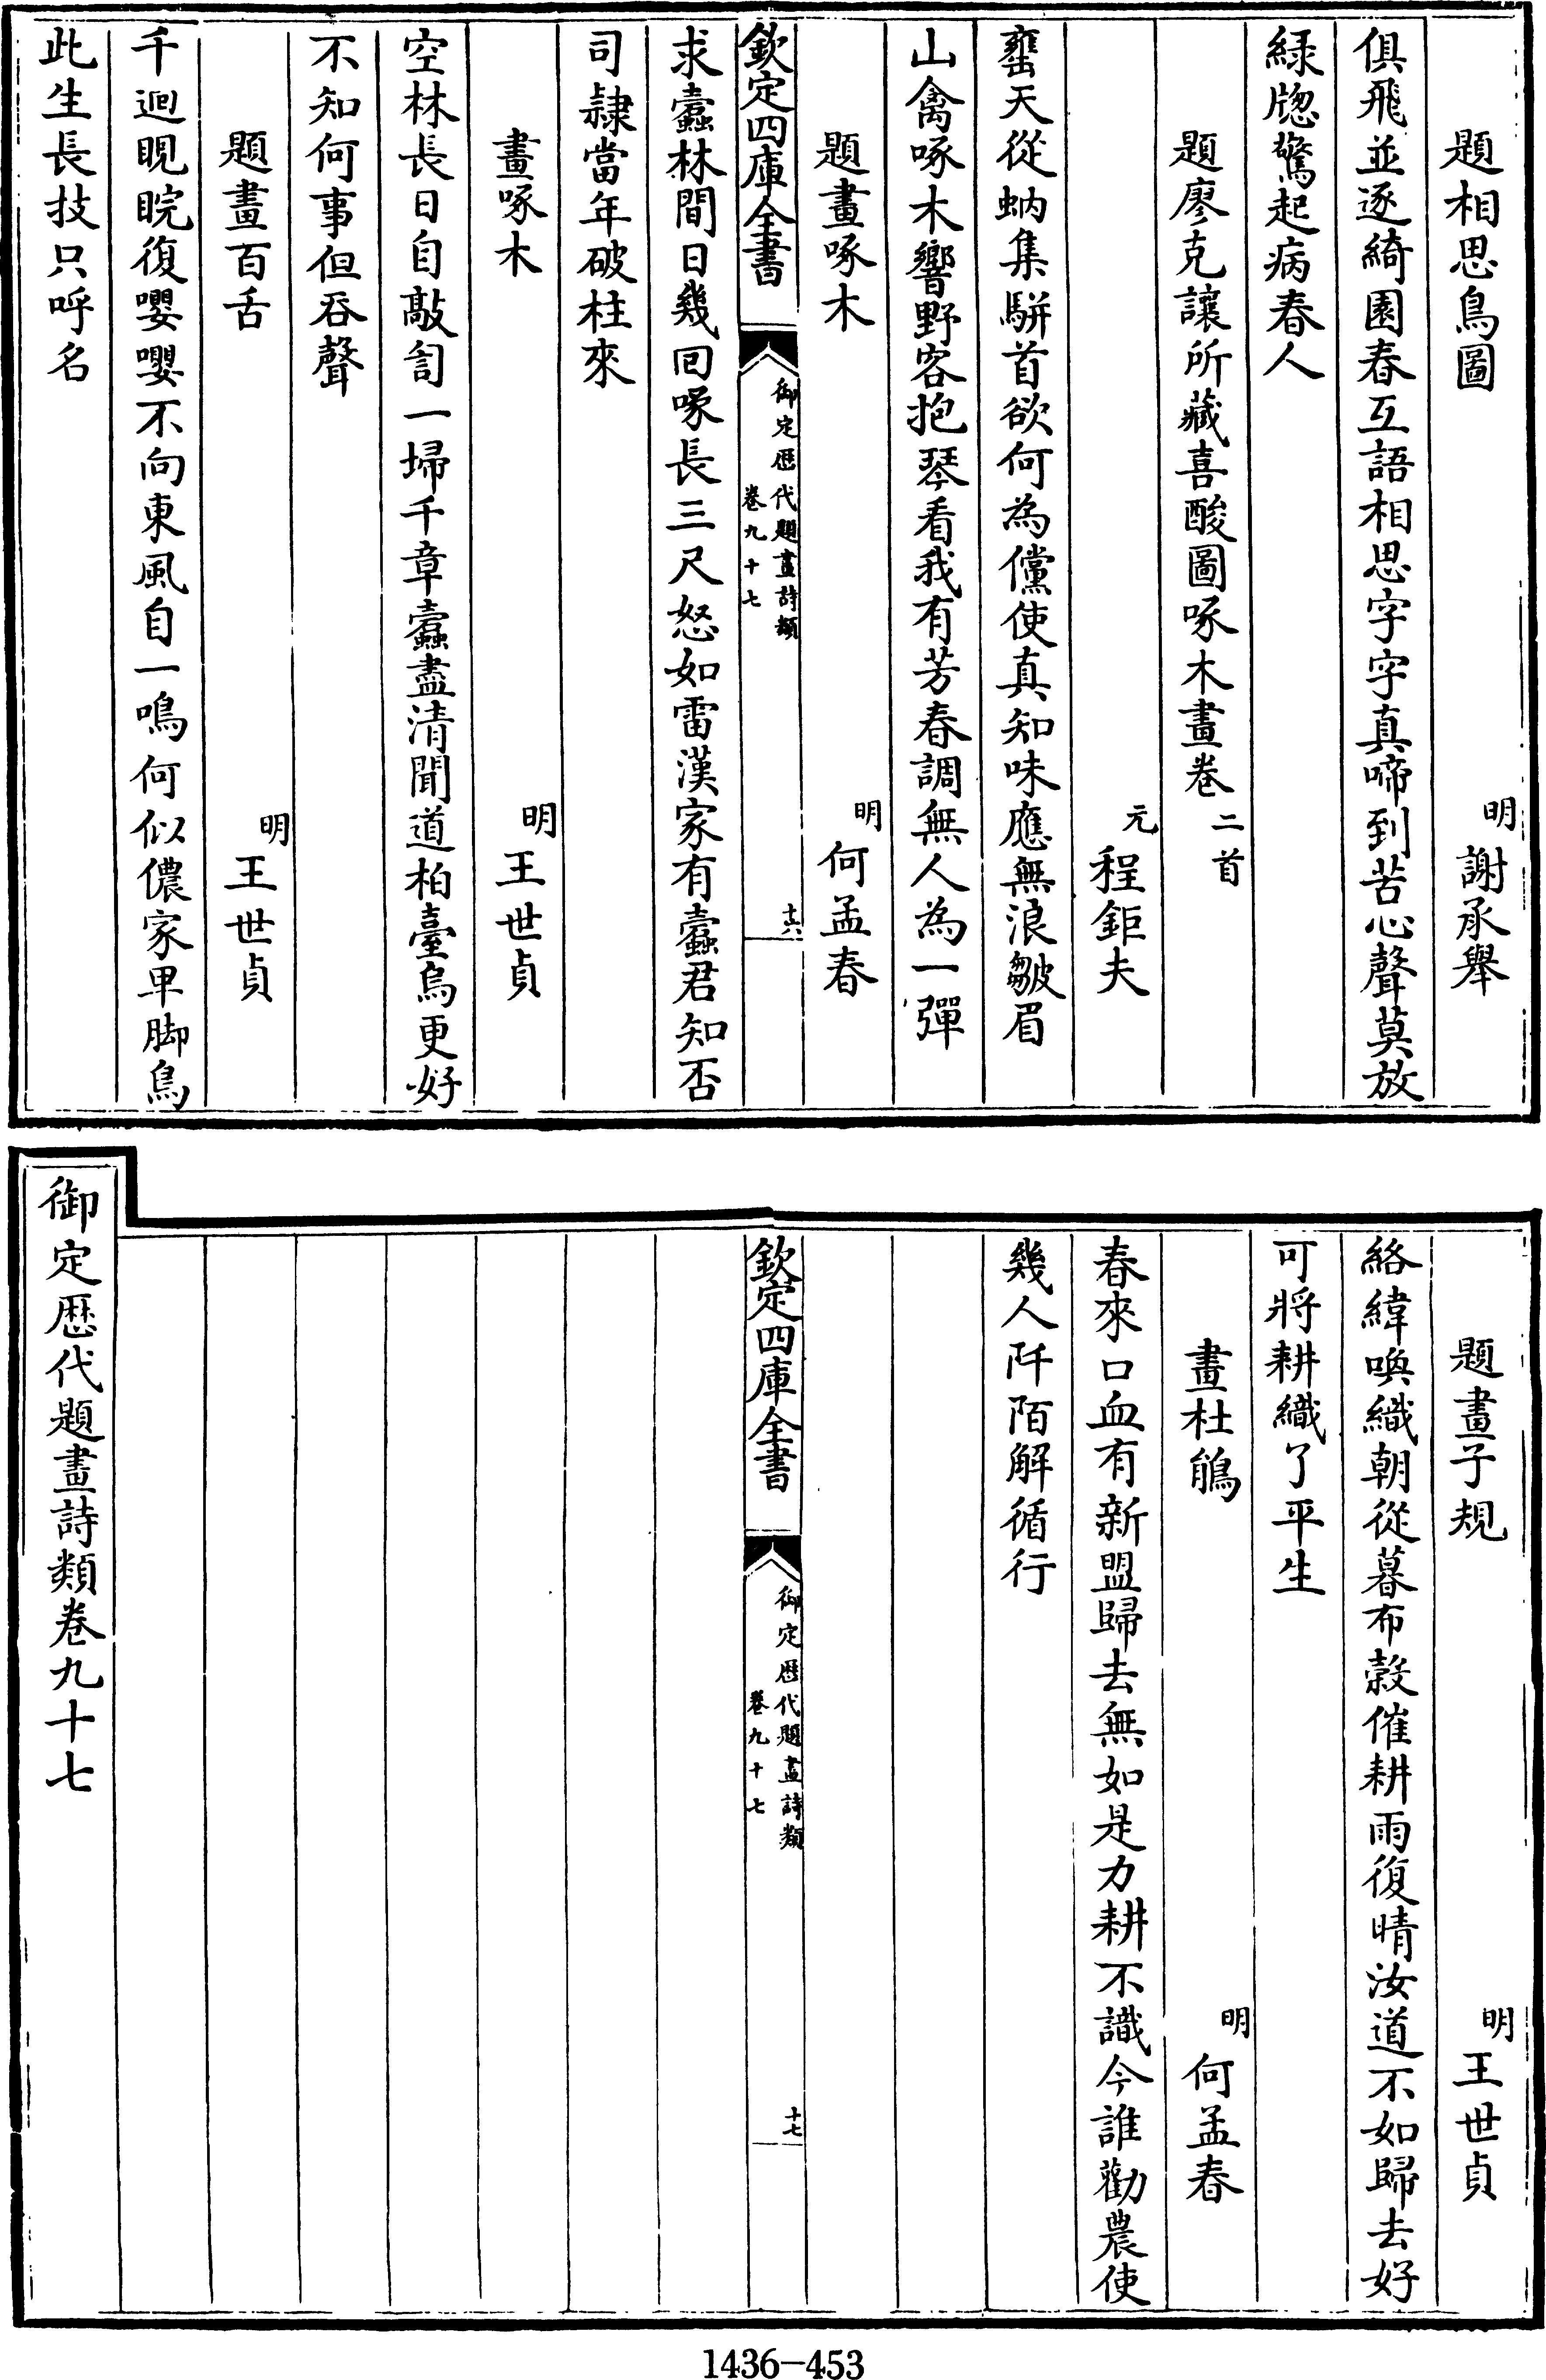 題相思鳥圖
明謝承舉
俱飛並逐綺園春互語相思字字真啼到苦心聲莫放
綠牕驚起病春人
題廖克讓所藏喜酸圖啄木畫卷二首
元程鉅夫
甕天從蚋集駢首欲何為儻使真知味應無浪皺眉
山禽啄木響野客抱琴看我有芳春調無人為一彈
題畫啄木
明何孟春
欽定四庫全書
御定歷代題畫詩類
卷九十七
十六
求蠹林間日幾回啄長三尺怒如雷漢家有蠹君知否
司隷當年破柱來
畫啄木
明王世貞
空林長日自敲訇一埽千章蠹盡清聞道柏臺烏更好
不知何事但吞聲
題畫百舌
明王世貞
千迴睍睆復嚶嚶不向東風自一鳴何似儂家甲脚鳥
此生長技只呼名
題畫子規
明王世貞
絡緯喚織朝從暮布穀催耕雨復晴汝道不如歸去好
可將耕織了平生
畫杜鵑
明何孟春
春來口血有新盟歸去無如是力耕不識今誰勸農使
幾人阡陌解循行
欽定四庫全書
御定歷代題畫詩類
卷九十七
十七
御定歷代題畫詩類卷九十七
1436-453